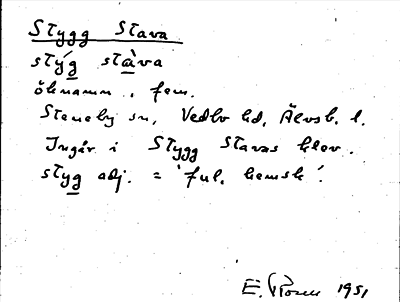 Stygg Stava
stýg stàva
öknamn, fem.
Steneby sn, Vedbo hd, Älvsb. l.
Ingår i Stygg Stavas klev.
styg adj. = 'ful, hemsk'.
E. Rosen 1951